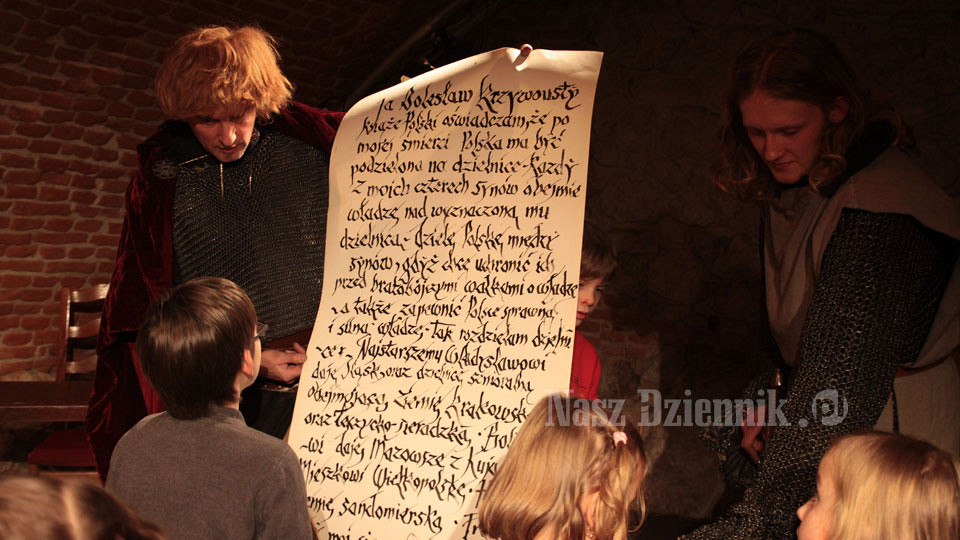 Ja Bolesław Krzywousty
książe Polski oświadczam, że po
mojej śmierci Polska ma być
podzielona na dzielnice. Każdy
z moich czterech synów obejmie
władzę nad wyznaczoną mu
dzielnicą. Dzielę Polskę między
synów, gdyż chcę uchronić ich
przed bratobójczymi walkami o władzę
a także zapewnić Polsce sprawną
i silną władzę. Tak rozdzielam
-ce: Najstarszemu Władysławowi
daję Śląsk, oraz dzielnicę senioralną
obejmującą Ziemię Krakowsk
oraz łęczycko-sieradzką.
-wi daję Mazowsze z Kuj
Mieszkowi Wielkopolskę.
sandomierską.
Nasz Dziennik .@